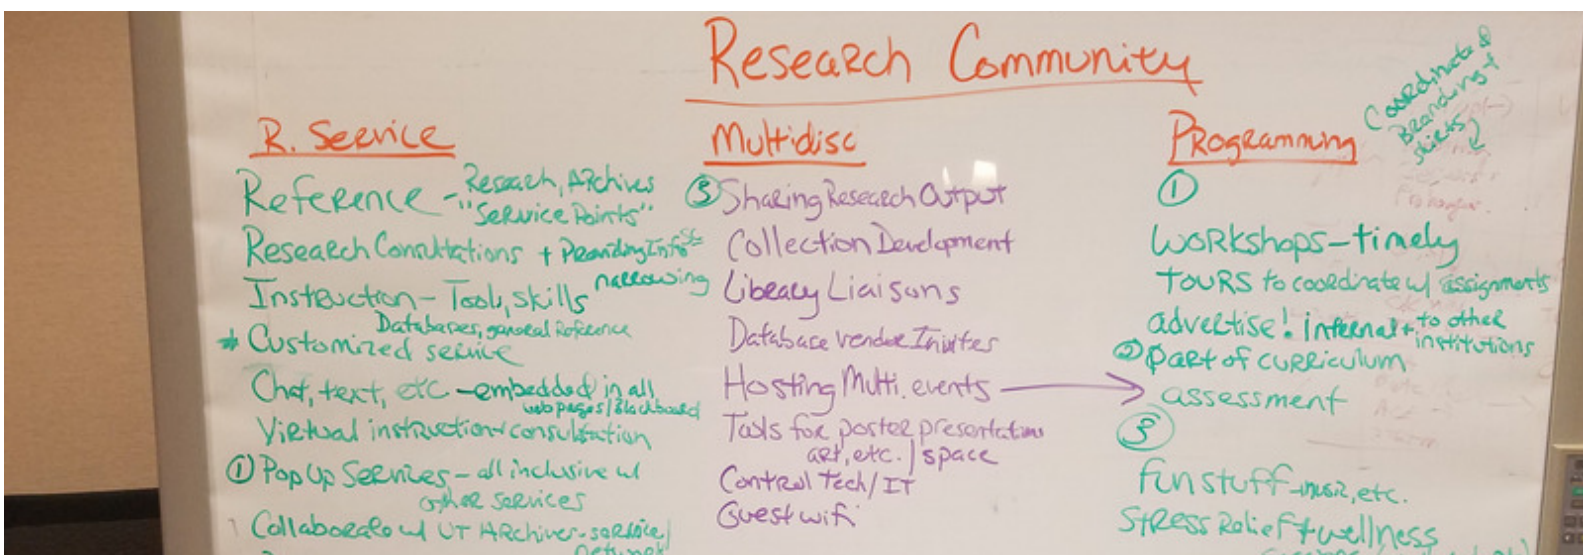 Research Community
Coordinate &
Branding +
skirts
R. Service
Reference - Research, Archives
"Service Points"
Research Consultations + Providing Info
narrowing
Instruction - Tools, skills
Databases, general Reference
* Customized service
Chat, text, etc - embedded in all
web pages/Blackboard
Virtual instruction + consultation
① Pop Up Services - all inclusive w/
other services
Collaborate w/ UT Archives - service/
Multidisc
③ Sharing Research Output
Collection Development
Library Liaisons
Database vendor Invites
Hosting Multi. events
Tools for poster presentations
art, etc. / space
Control Tech/IT
Guest wifi
Programming
①
Workshops - timely
Tours to coordinate w/ assignments
advertise! internal + to other
institutions
② part of curriculum
assessment
③
Fun stuff - music, etc.
Stress Relief + wellness